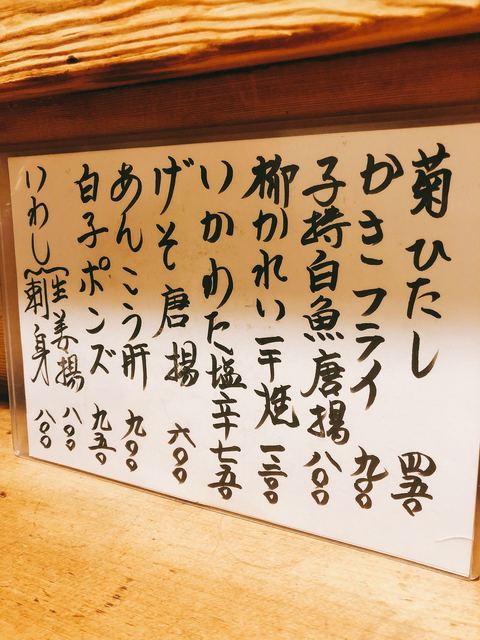 菊ひたし 四五〇
かきフライ 九〇〇
子持白魚唐揚 八〇〇
柳かれい一干焼 一、三〇〇
いかわた塩辛 七五〇
げそ唐揚 六〇〇
あんこう肝 九〇〇
白子ポンズ 九五〇
いわし
生姜揚 八〇〇
刺身 八〇〇